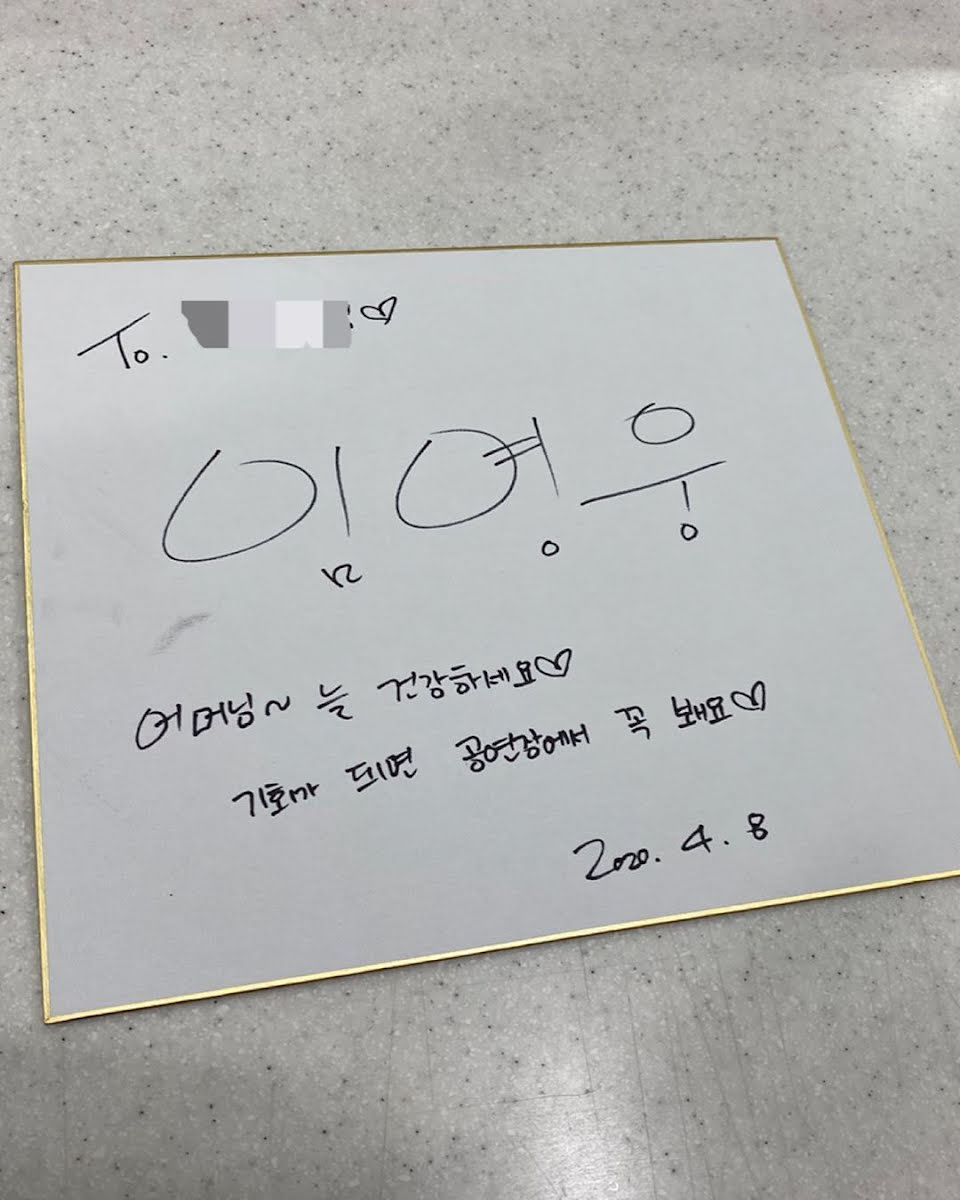 To. ♡
임영웅
어머님~ 늘 건강하세요♡
기회가 되면 공연장에서 꼭 봬요♡
2020. 4. 8